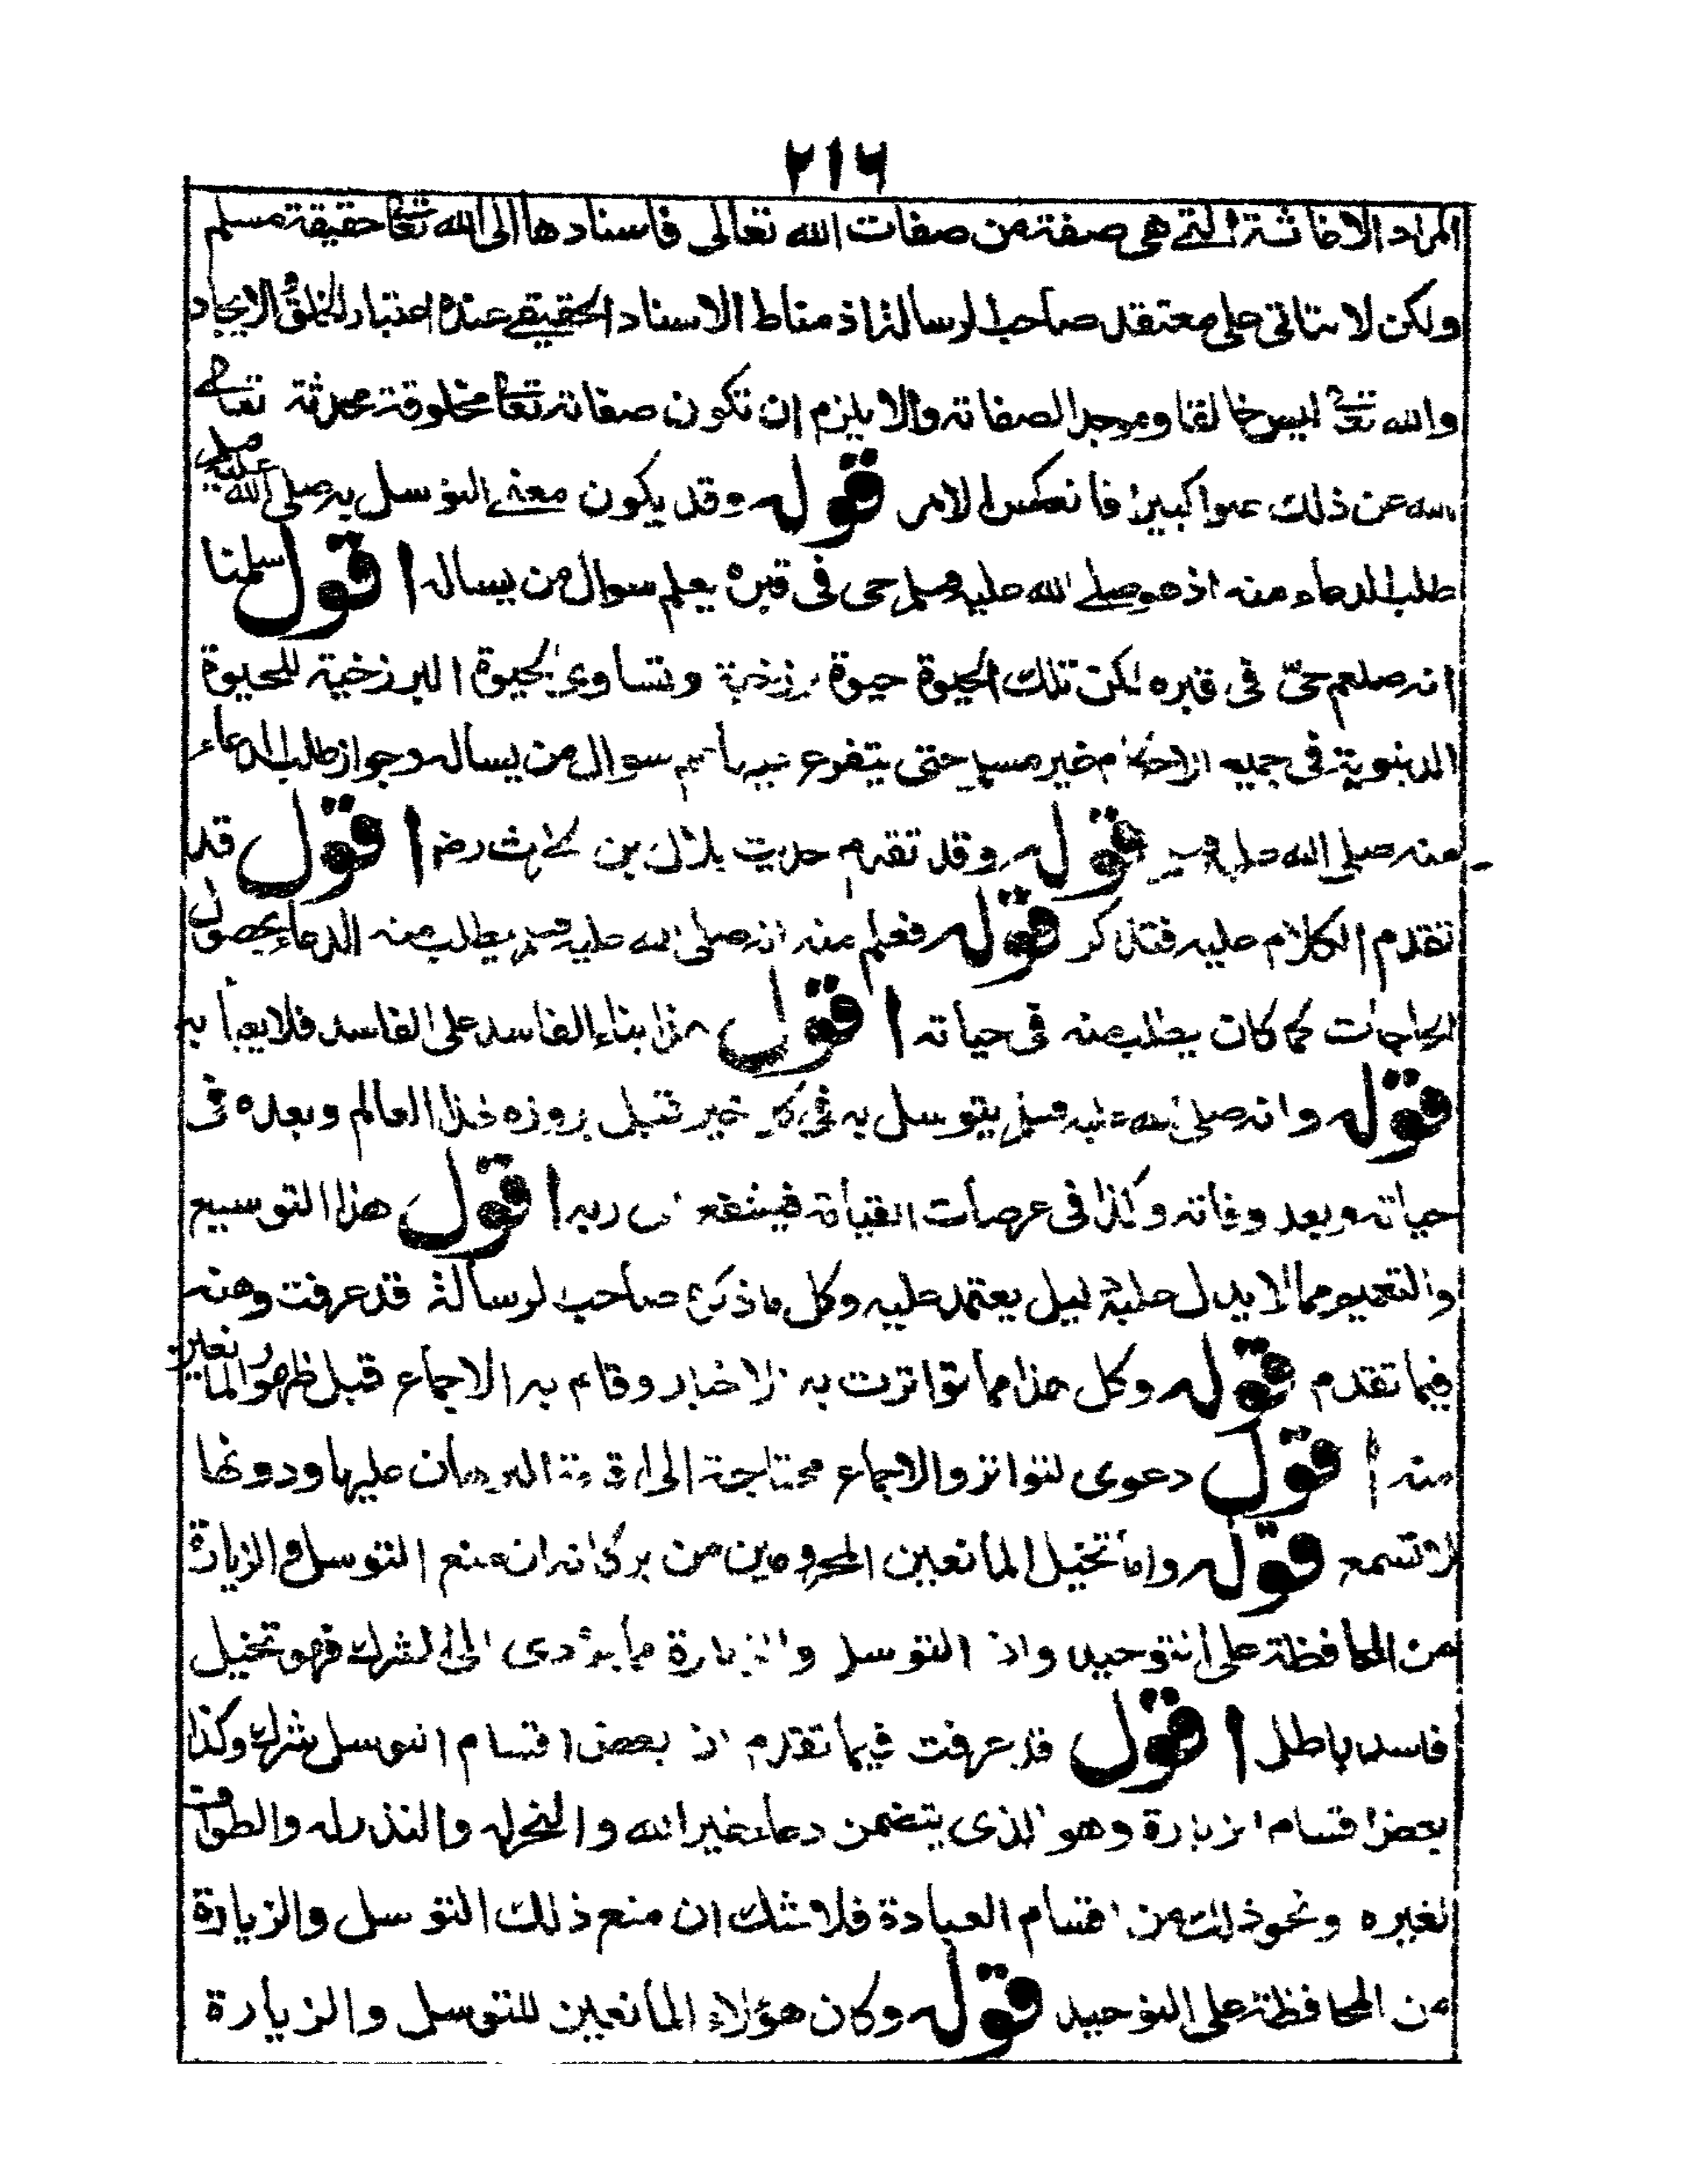 ٢١٦
المراد الاغاثة التے هى صفة من صفات الله تعالى فاسنادها الى الله تعا حقيقة مسلم
ولكن لا يتاتى على معتقد صاحب الرسالة اذ مناط الاسناد الحقيقے عنده اعتبار الخلق والايجاد
والله تعا ليس خالقا وموجدا لصفاته والا يلزم ان تكون صفاته تعا مخلوقة محدثة تعالے
الله عن ذلك علوا كبيرا فانعكس الامر قوله وقد يكون معنے التوسل به صلى الله عليه وسلم
طلب الدعاء منه اذ هو صلے الله عليه وسلم حى فى قبره يعلم سوال من يساله اقول سلمنا
انه صلعم حىّ فى قبره لكن تلك الحيوة حيوة برزخية وتساوى الحيوة البرزخية للحيوة
الدنيوية فى جميع الاحكام غير مسلم حتى يتفرع عليه علم سوال من يساله وجواز طلب الدعاء
منه صلى الله عليه وسلم قوله وقد تقدم حديث بلال بن الحارث رضہ اقول قد
تقدم الكلام عليه فتذكر قوله فعلم منه انه صلى الله عليه وسلم يطلب منه الدعاء بحصول
الحاجات كما كان يطلب منه فى حياته اقول هذا بناء الفاسد على الفاسد فلا يعبأ به
قوله وانه صلى الله عليه وسلم يتوسل به فى كل خير قبل بروزه لهذا العالم وبعده فى
حياته وبعد وفاته وكذا فى عرصات القيامة فيشفع الى ربه اقول هذا التوسيع
والتعميم مما لا يدل عليه دليل يعتمد عليه وكل ما ذكره صاحب الرسالة قد عرفت وهنه
فيما تقدم قوله وكل هذا مما تواترت به الاخبار وقام به الاجماع قبل ظهور المانعين
منه اقول دعوى التواتر والاجماع محتاجة الى اقامة البرهان عليها ودونها
لا تسمع قوله واما تخيل المانعين المحرومين من بركاته ان منع التوسل والزيارة
من المحافظة على التوحيد وان التوسل والزيارة مما يؤدى الى الشرك فهو تخيل
فاسد باطل اقول قد عرفت فيما تقدم ان بعض اقسام التوسل شرك وكذا
بعض اقسام الزيارة وهو الذى يتضمن دعاء غير الله والنحر له والنذر له والطواف
لغيره ونحو ذلك من اقسام العبادة فلا شك ان منع ذلك التوسل والزيارة
من المحافظة على التوحيد قوله وكان هؤلاء المانعين للتوسل والزيارة